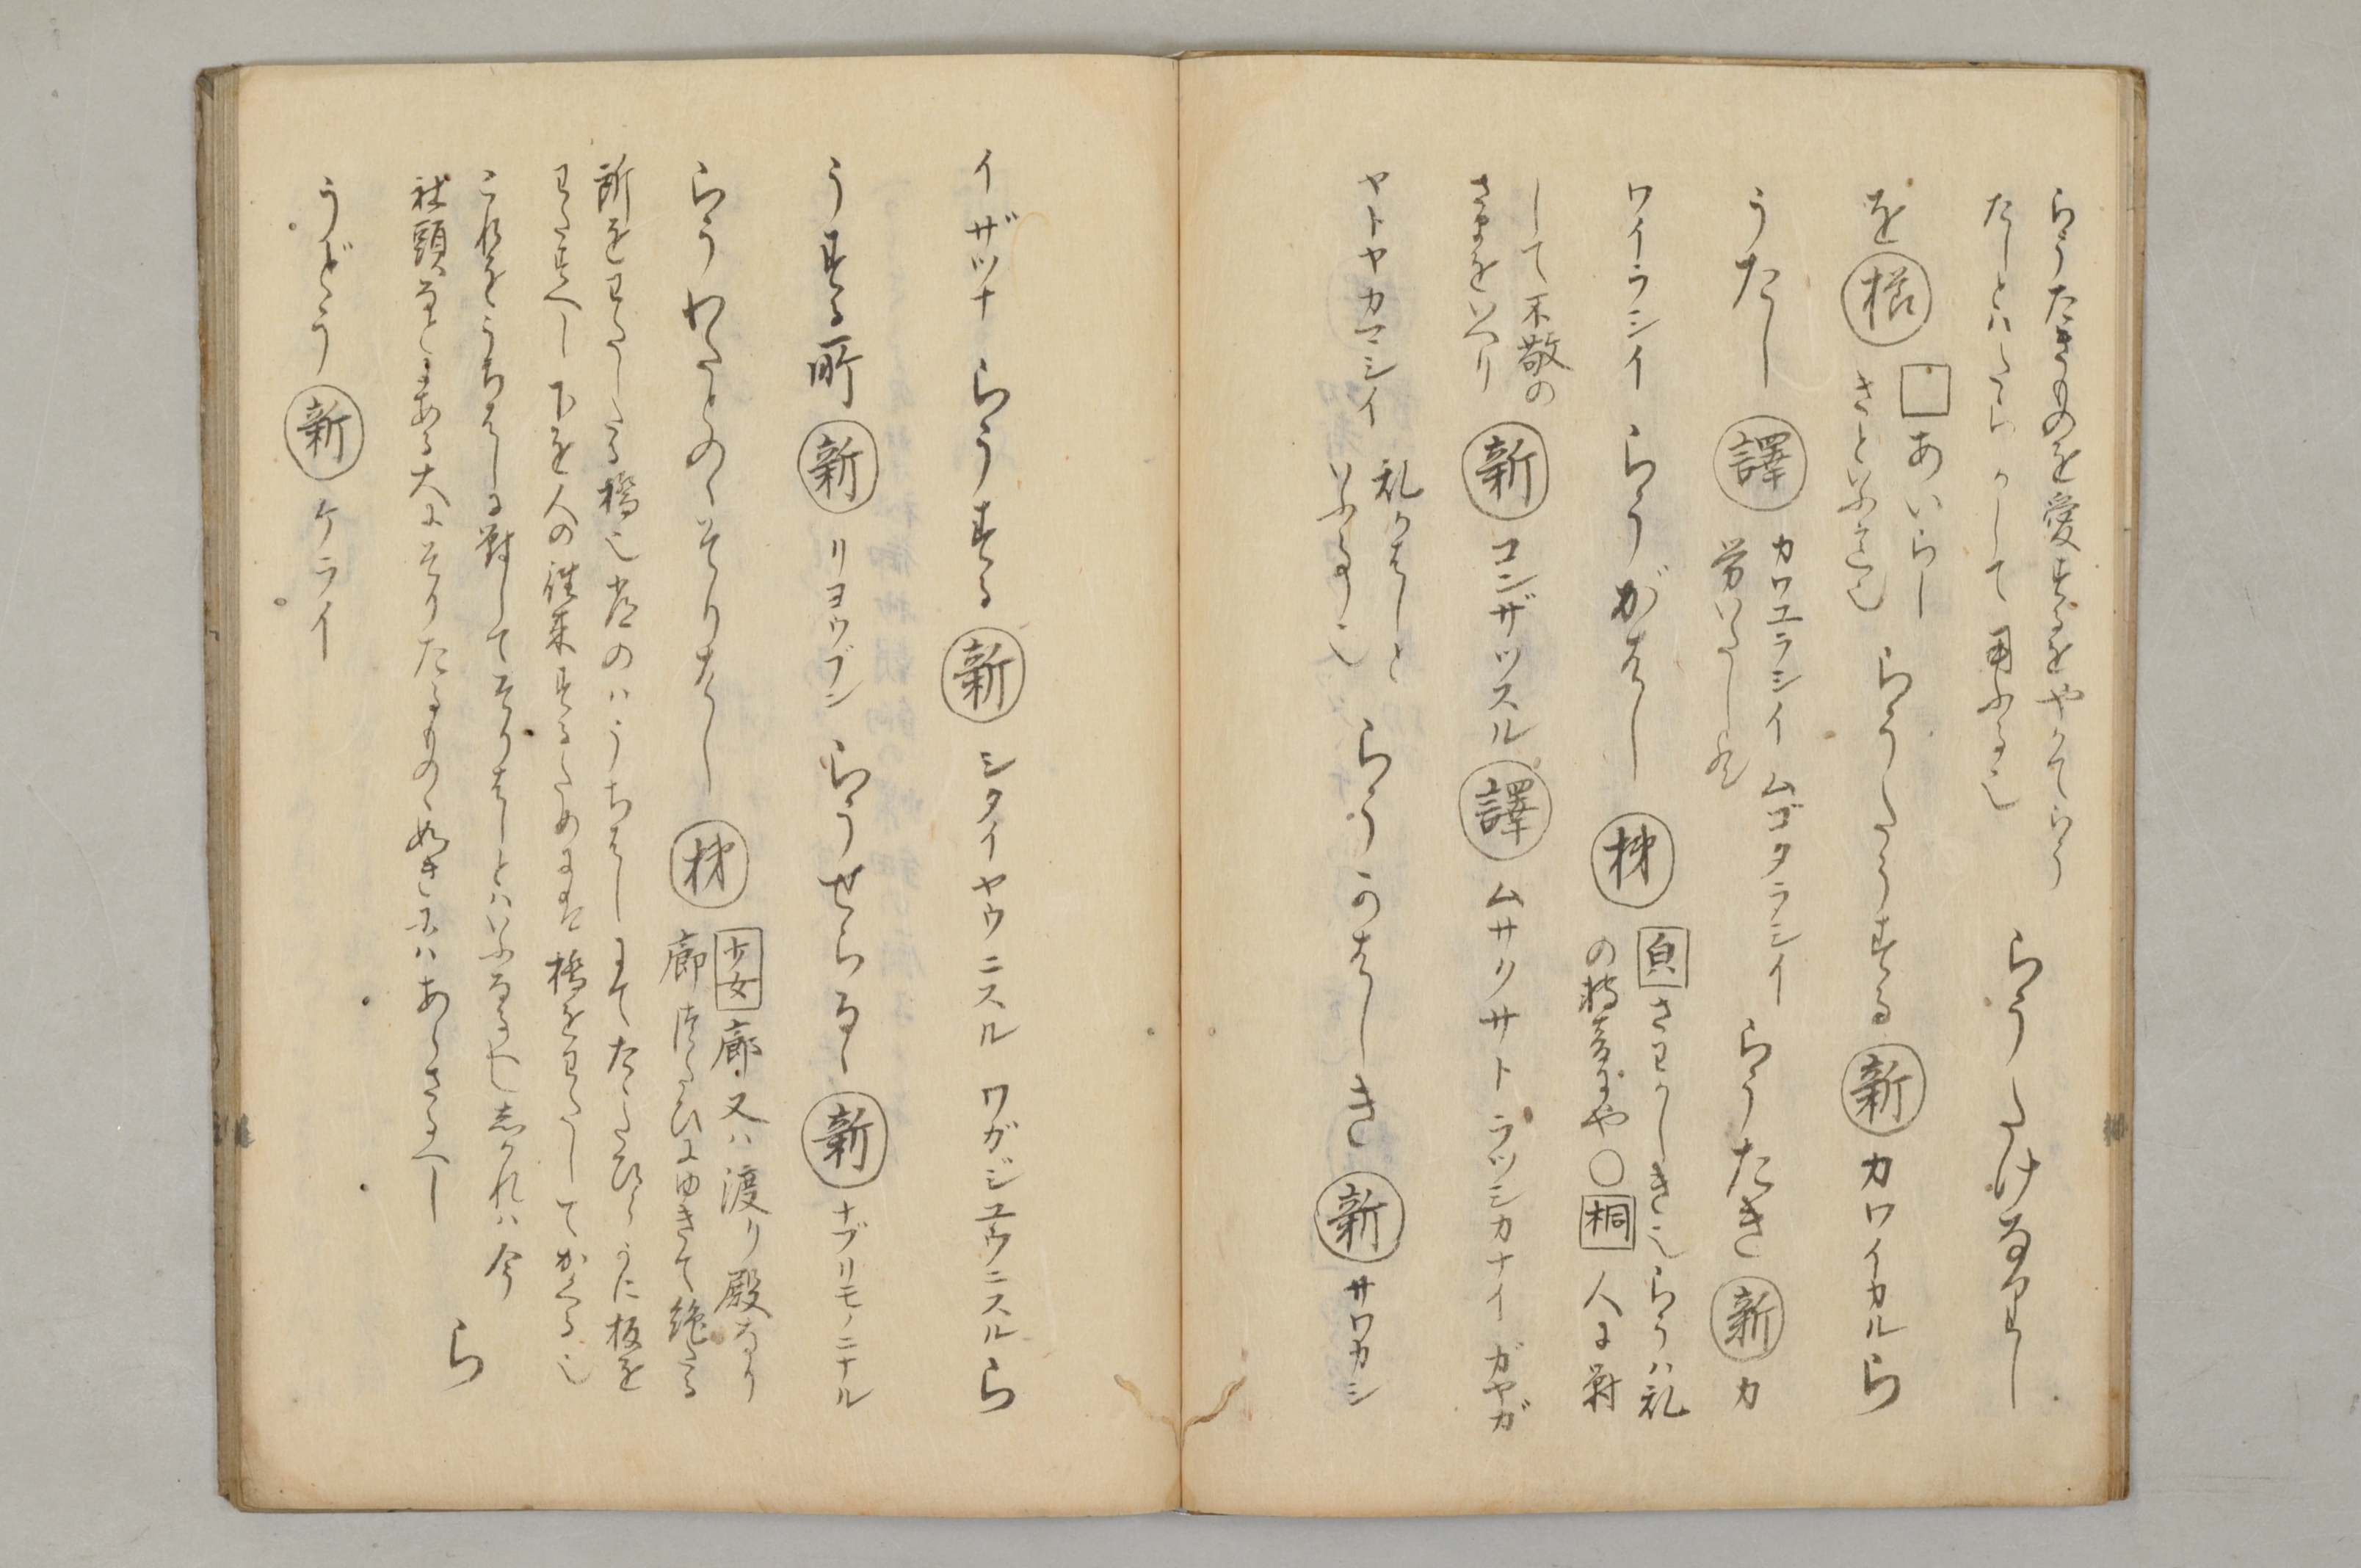 らうたきものを愛するをやかてらう
たしとハたらかして用ふる也
らうたけなりし
を
あいらし
さといふこと也
らうたうする 新 カワイガル ら
うたし 譯 カワユラシイ ムゴタラシイ
労いたし
らうたき 新 カ
ワイラシイ らうがはし
さわかしき也らうハ乱
の
〇 桐 人に對
して不敬の
さまをいへり
新 コンザツスル 譯 ムサクサトラツシカナイ ガヤガ
ヤトヤカマシイ
乱かはしと
いふ也
らうかはしき 新 サワカシ
イ ザツナ らうする 新 シタイヤウニスル ワガジユウニスル ら
うする所 新 リヨウブン らうせらるゝ 新 ナブリモノニナル
らうわたとのゝそりはし
少女 廊又ハ渡り殿なり
廊 つたひにゆきて絶たる
所をわたしたる橋也 常のハうちはしにてたゝたひらうに板を
わたすへし 下を人の往来するために 橋をわたしてかくる也
これをうちはしに對してそりはしとハいふなるへし しかれハ今
社頭なとにある大にそりたるものゝ如きにハあらさるへし
ら
うどう 新 ケライ